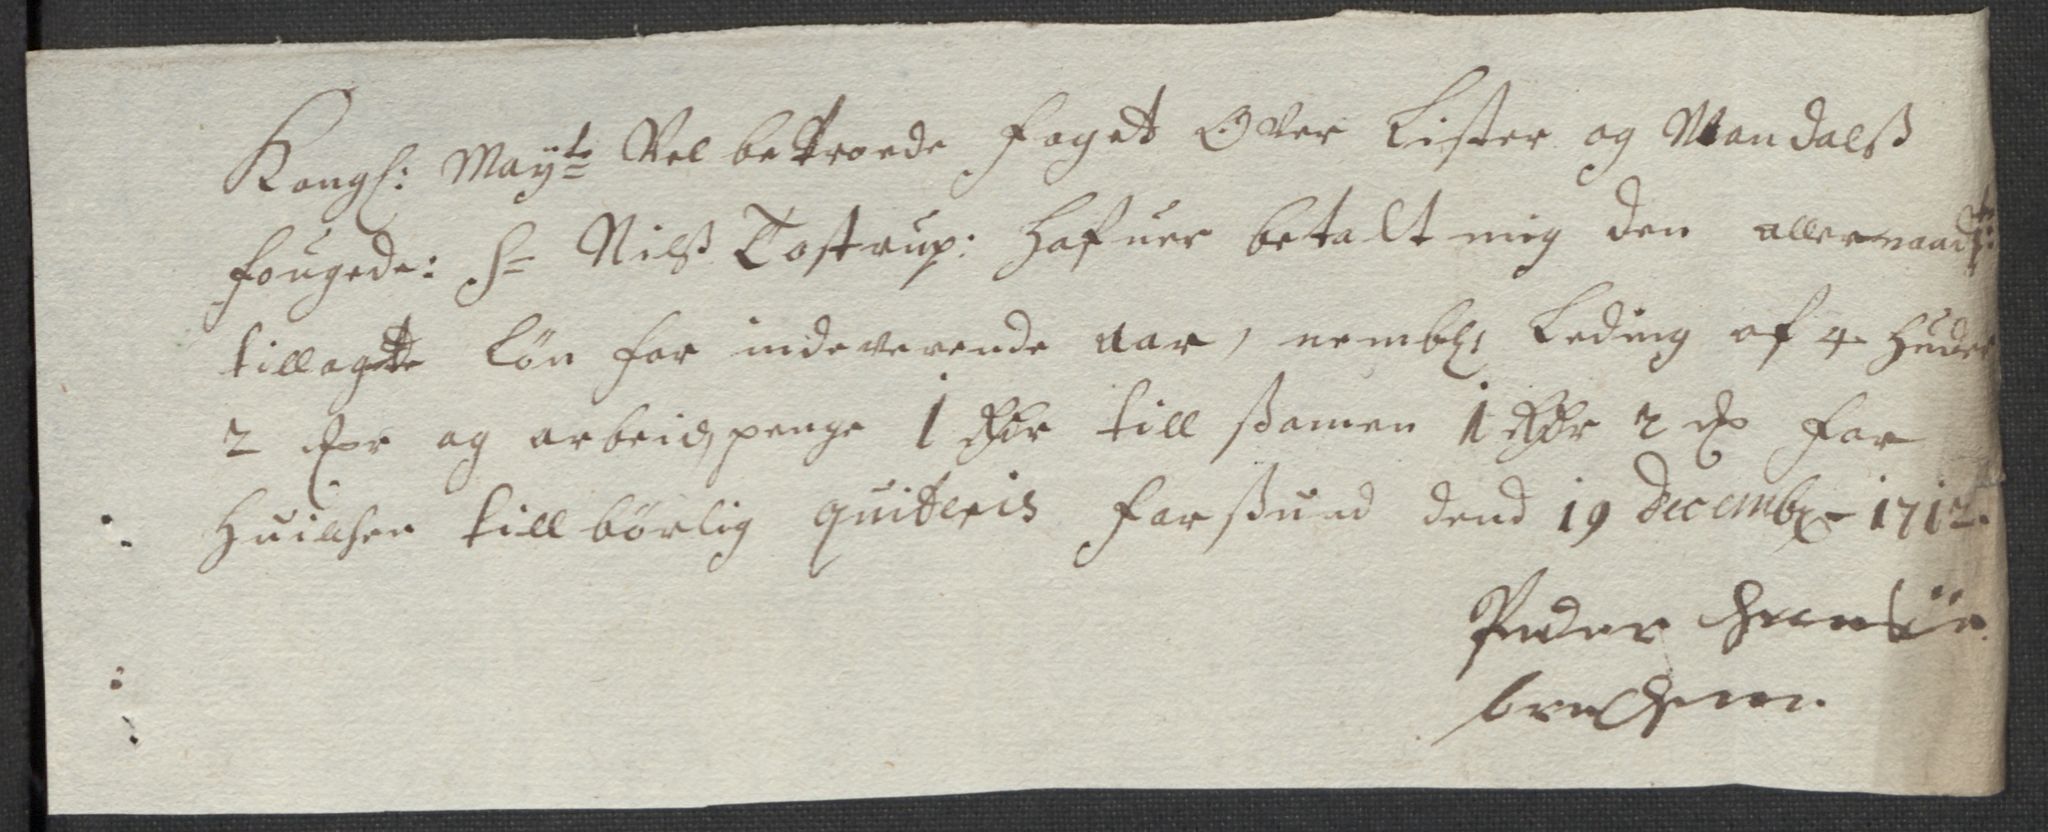 Kongl: May:ts Vel betroede foget Over Lister og Mandalß
fougede: Sr Nilß Tostrup: hafuer betalt mig den allernaad:
tillagte Løn for indeverende aar, nembl: Leding af 4 huder
2 og arbeidspenge 1 till ßamen 1 2 for
huilcken tillbørlig quiteris farßund dend 19 Decembr 1712.
Peder